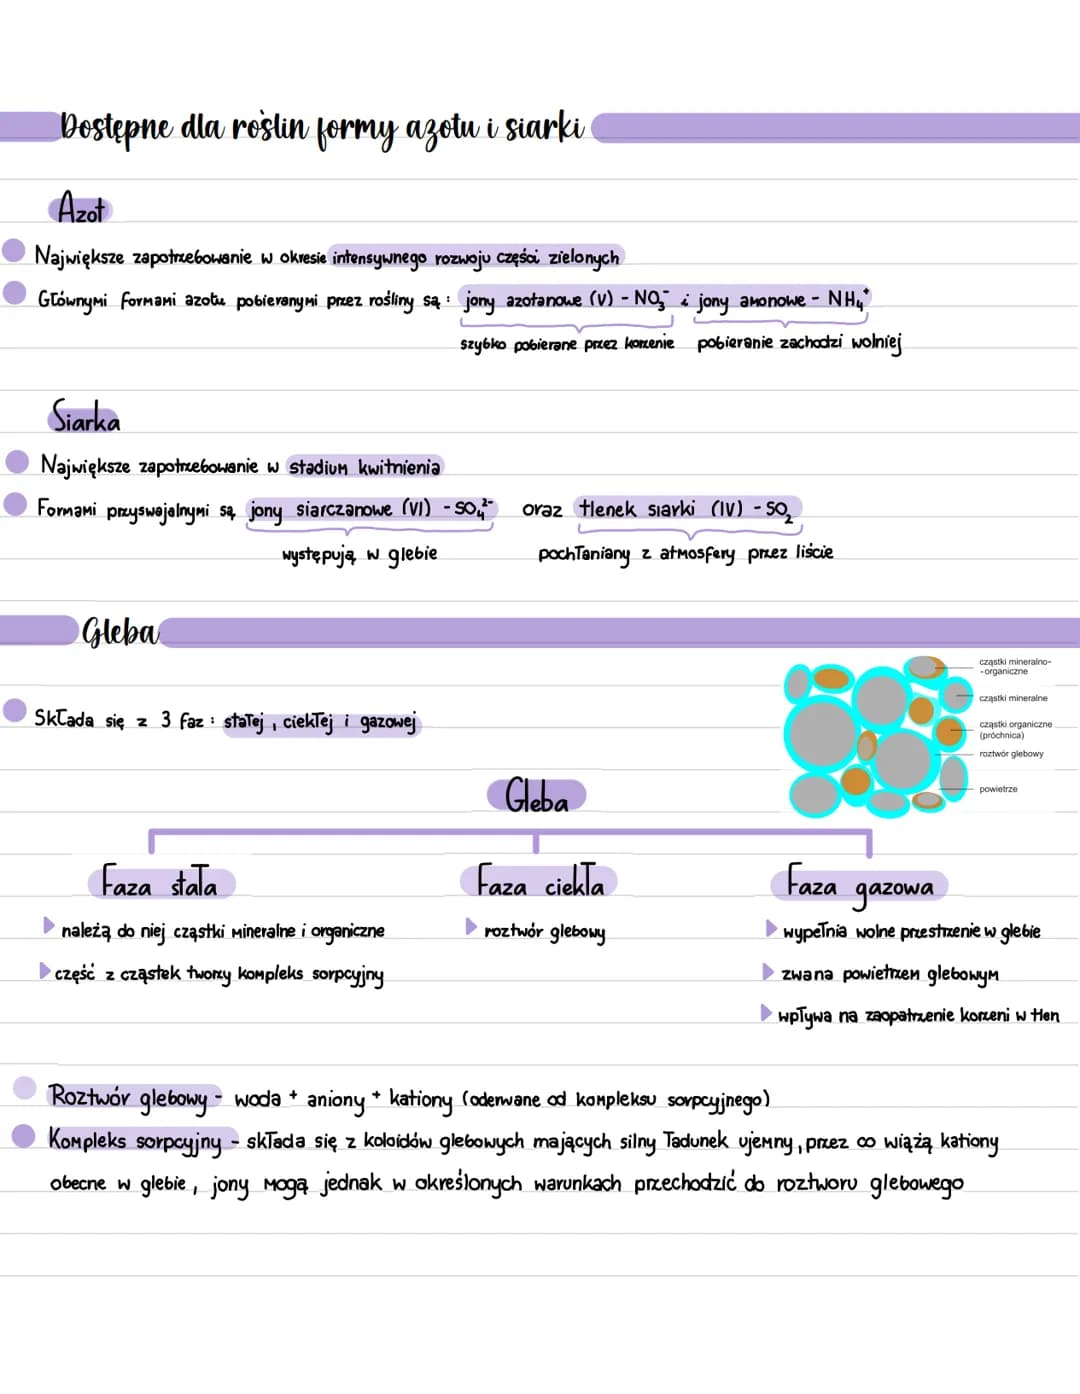 Dostępne dla roślin formy azotu i siarki
Azot
Największe zapotrzebowanie w okresie intensywnego rozwoju części zielonych
Głównymi formami azotu pobieranymi przez rośliny są : jony azotanowe (V) - NO₃⁻ i jony amonowe - NH₄⁺
szybko pobierane przez korzenie pobieranie zachodzi wolniej
Siarka
Największe zapotrzebowanie w stadium kwitnienia
Formami przyswajalnymi są jony siarczanowe (VI) - SO₄²⁻ oraz tlenek siarki (IV) - SO₂
występują w glebie pochłaniany z atmosfery przez liście
Gleba
cząstki mineralno-
-organiczne
cząstki mineralne
cząstki organiczne
(próchnica)
roztwór glebowy
powietrze
Składa się z 3 faz : stałej , ciekłej i gazowej
Gleba
Faza stała Faza ciekła Faza gazowa
należą do niej cząstki mineralne i organiczne roztwór glebowy wypełnia wolne przestrzenie w glebie
część z cząstek tworzy kompleks sorpcyjny zwana powietrzem glebowym
wpływa na zaopatrzenie korzeni w tlen
Roztwór glebowy - woda + aniony + kationy (oderwane od kompleksu sorpcyjnego)
Kompleks sorpcyjny - składa się z koloidów glebowych mających silny ładunek ujemny , przez co wiążą kationy
obecne w glebie , jony mogą jednak w określonych warunkach przechodzić do roztworu glebowego